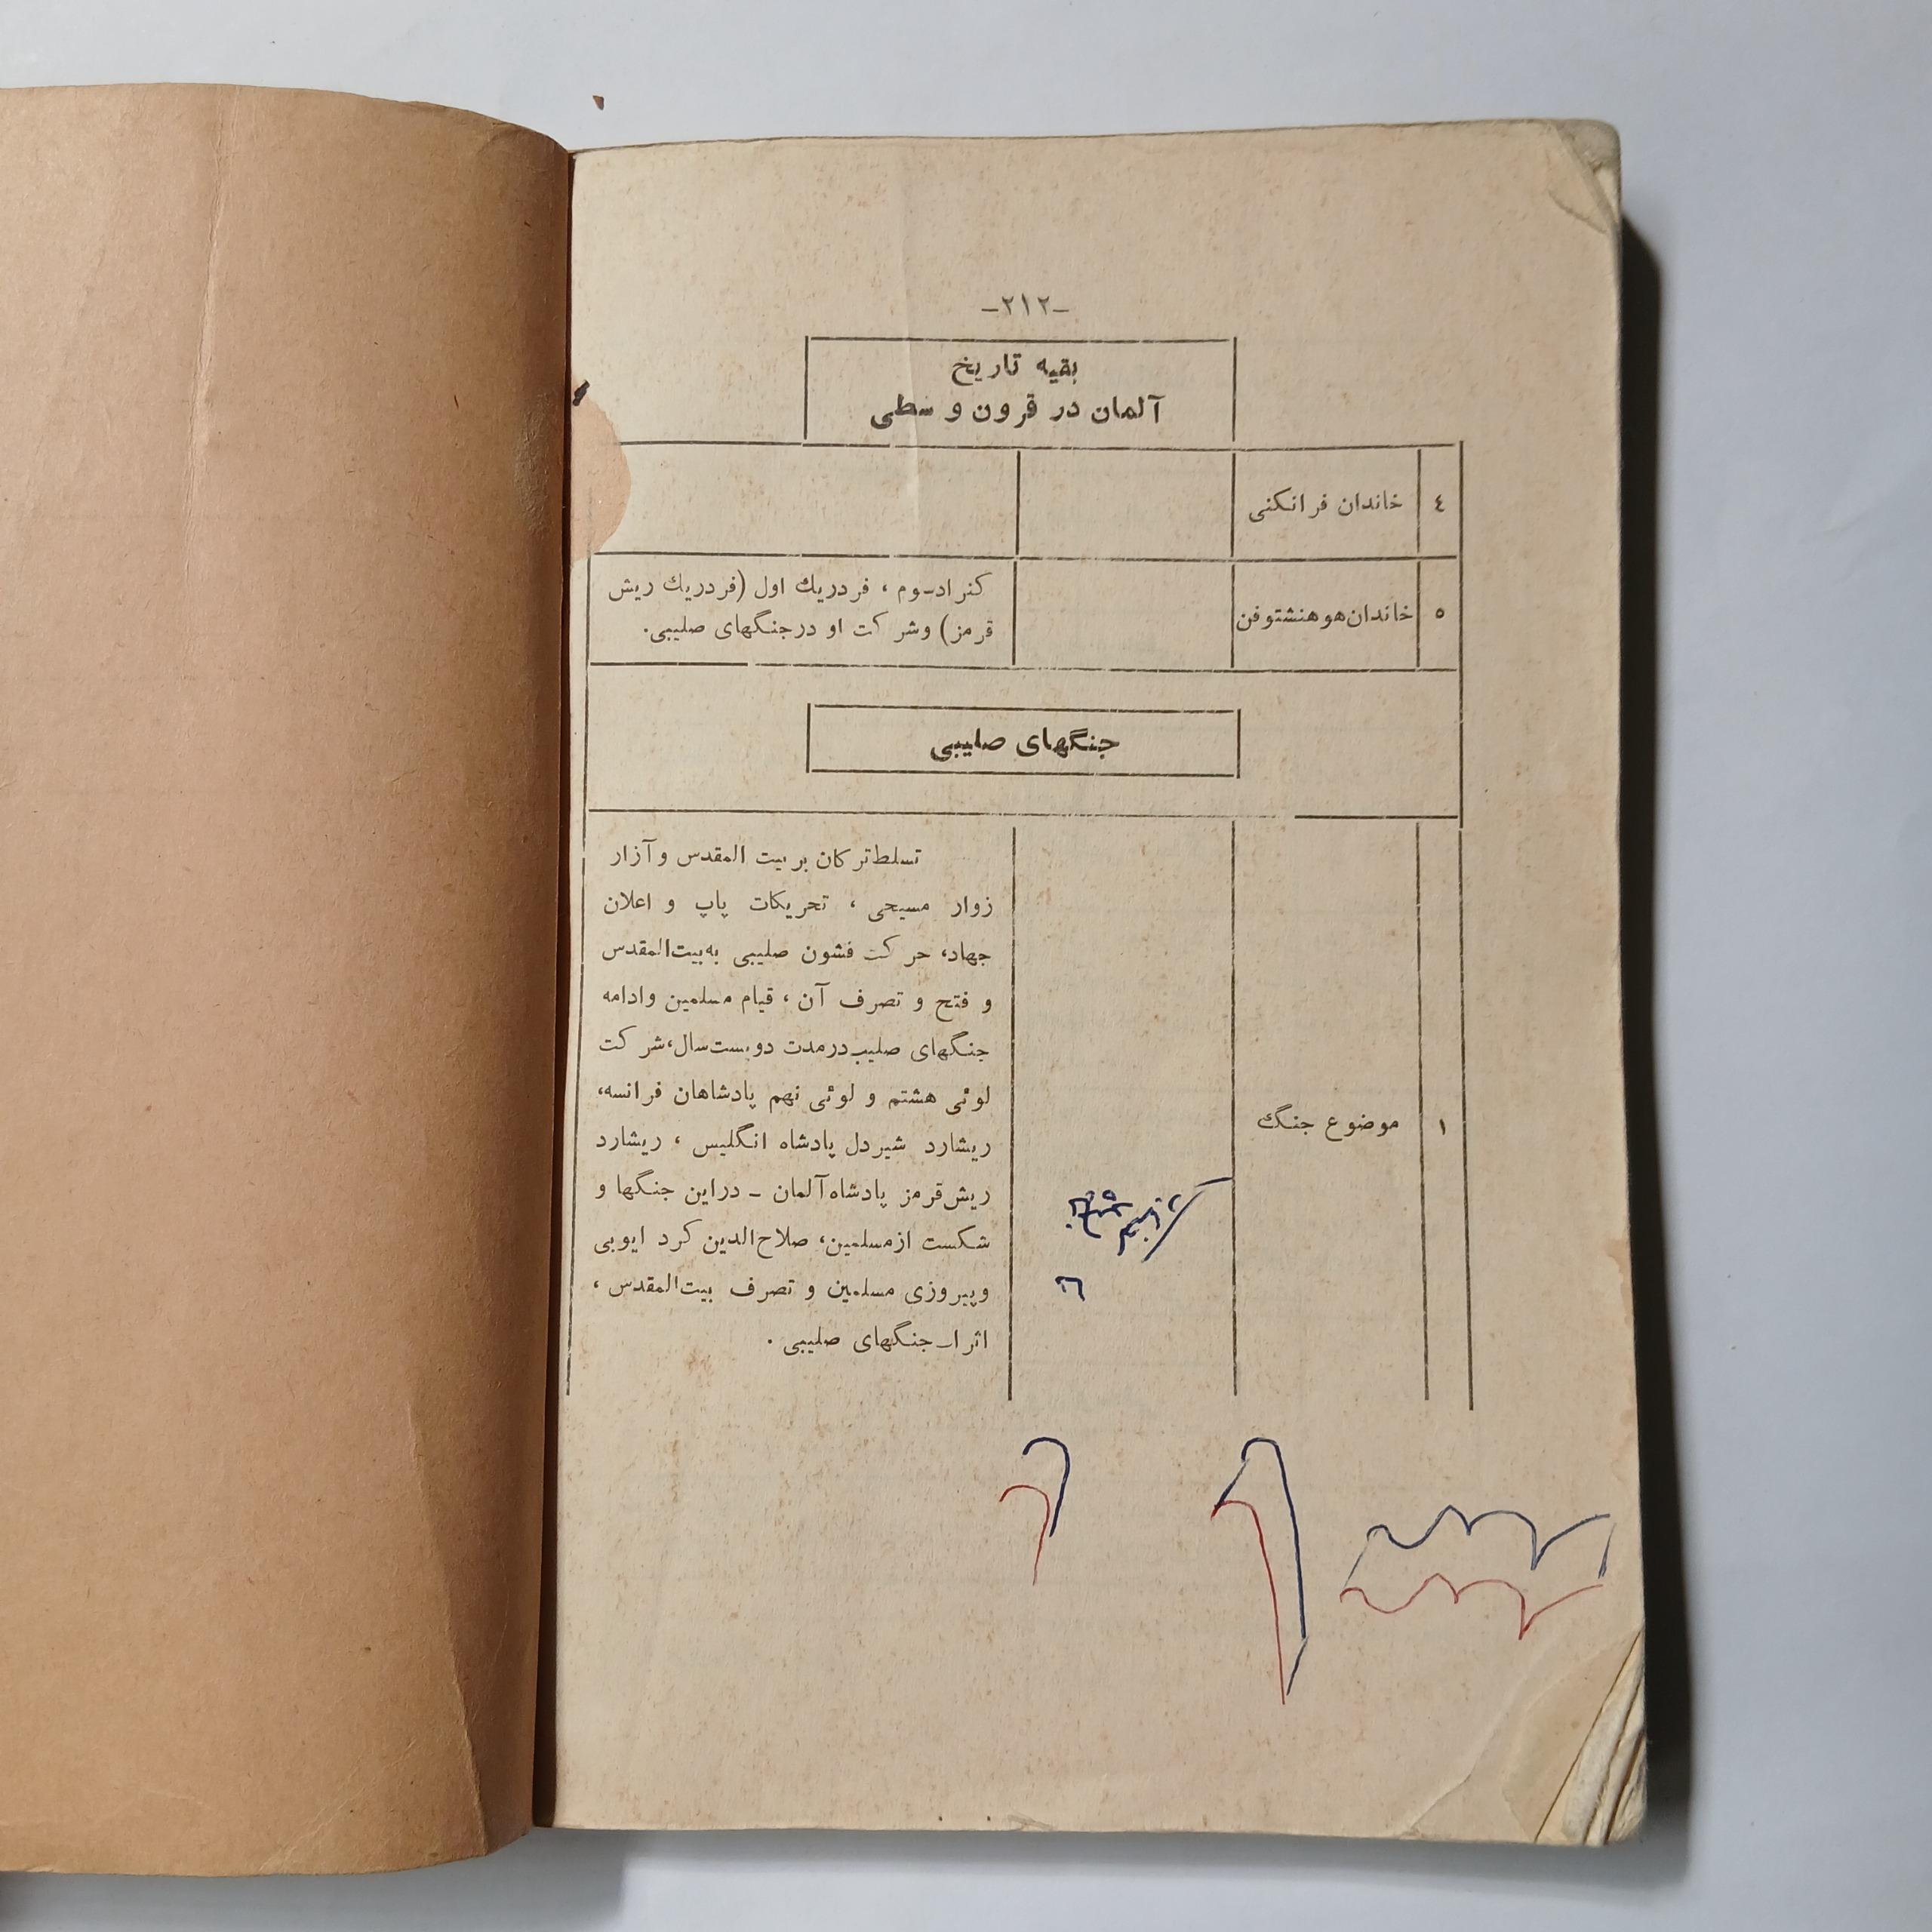 -۲۱۲-
بقیه تاریخ
آلمان در قرون وسطی
٤ خاندان فرانکنی
٥ خاندان هوهنشتوفن
کنراد سوم ، فردریك اول (فردریك ریش
قرمز) وشرکت او درجنگهای صلیبی.
جنگهای صلیبی
۱ موضوع جنگ
تسلط ترکان بر بیت المقدس و آزار
زوار مسیحی ، تحریکات پاپ و اعلان
جهاد، حرکت قشون صلیبی به بیت‌المقدس
و فتح و تصرف آن ، قیام مسلمین وادامه
جنگهای صلیب درمدت دویست سال، شرکت
لوئی هشتم و لوئی نهم پادشاهان فرانسه،
ریشارد شیردل پادشاه انگلیس ، ریشارد
ریش قرمز پادشاه آلمان - دراین جنگها و
شکست ازمسلمین، صلاح‌الدین کرد ایوبی
وپیروزی مسلمین و تصرف بیت‌المقدس ،
اثرات جنگهای صلیبی .